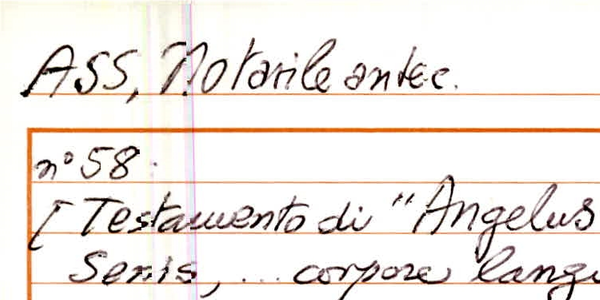 ASS, Notarile antec.
n° 58.
[Testamento di "Angelus
Senis, ... corpore langu